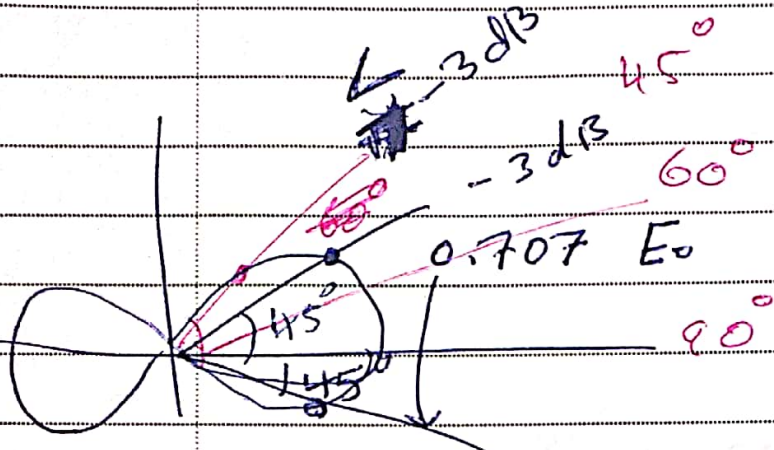 < -3 dB
45°
-3 dB
60°
60°
0.707 E₀
45°
90°
45°